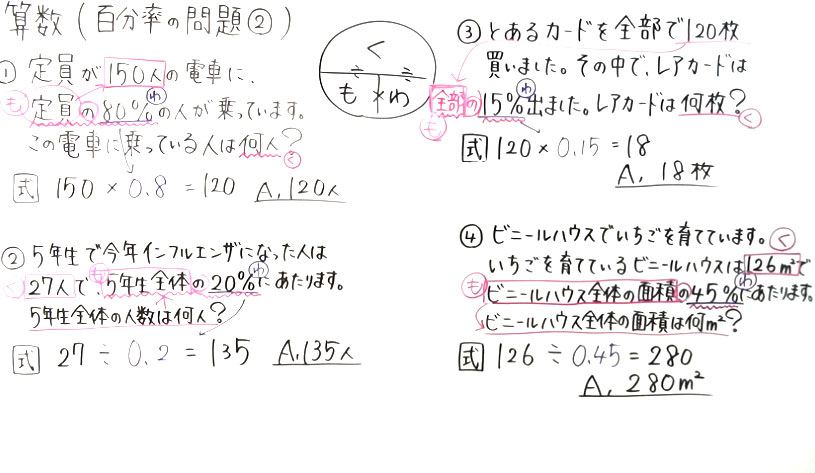 算数(百分率の問題②)
① 定員が150人の電車に、
も 定員の80%の人が乗っています。
わ
この電車に乗っている人は何人?
く
式 150 × 0.8 = 120 A.120人
② 5年生で今年インフルエンザになった人は
く 27人で、5年生全体の20%にあたります。
も わ
5年生全体の人数は何人?
式 27 ÷ 0.2 = 135 A.135人
く
も × わ
③ とあるカードを全部で120枚
買いました。その中で、レアカードは
全部の15%出ました。レアカードは何枚?
も わ く
式 120 × 0.15 = 18
A. 18枚
④ ビニールハウスでいちごを育てています。
く
いちごを育てているビニールハウスは126m²で
も ビニールハウス全体の面積の45%にあたります。
わ
ビニールハウス全体の面積は何m²?
式 126 ÷ 0.45 = 280
A. 280m²